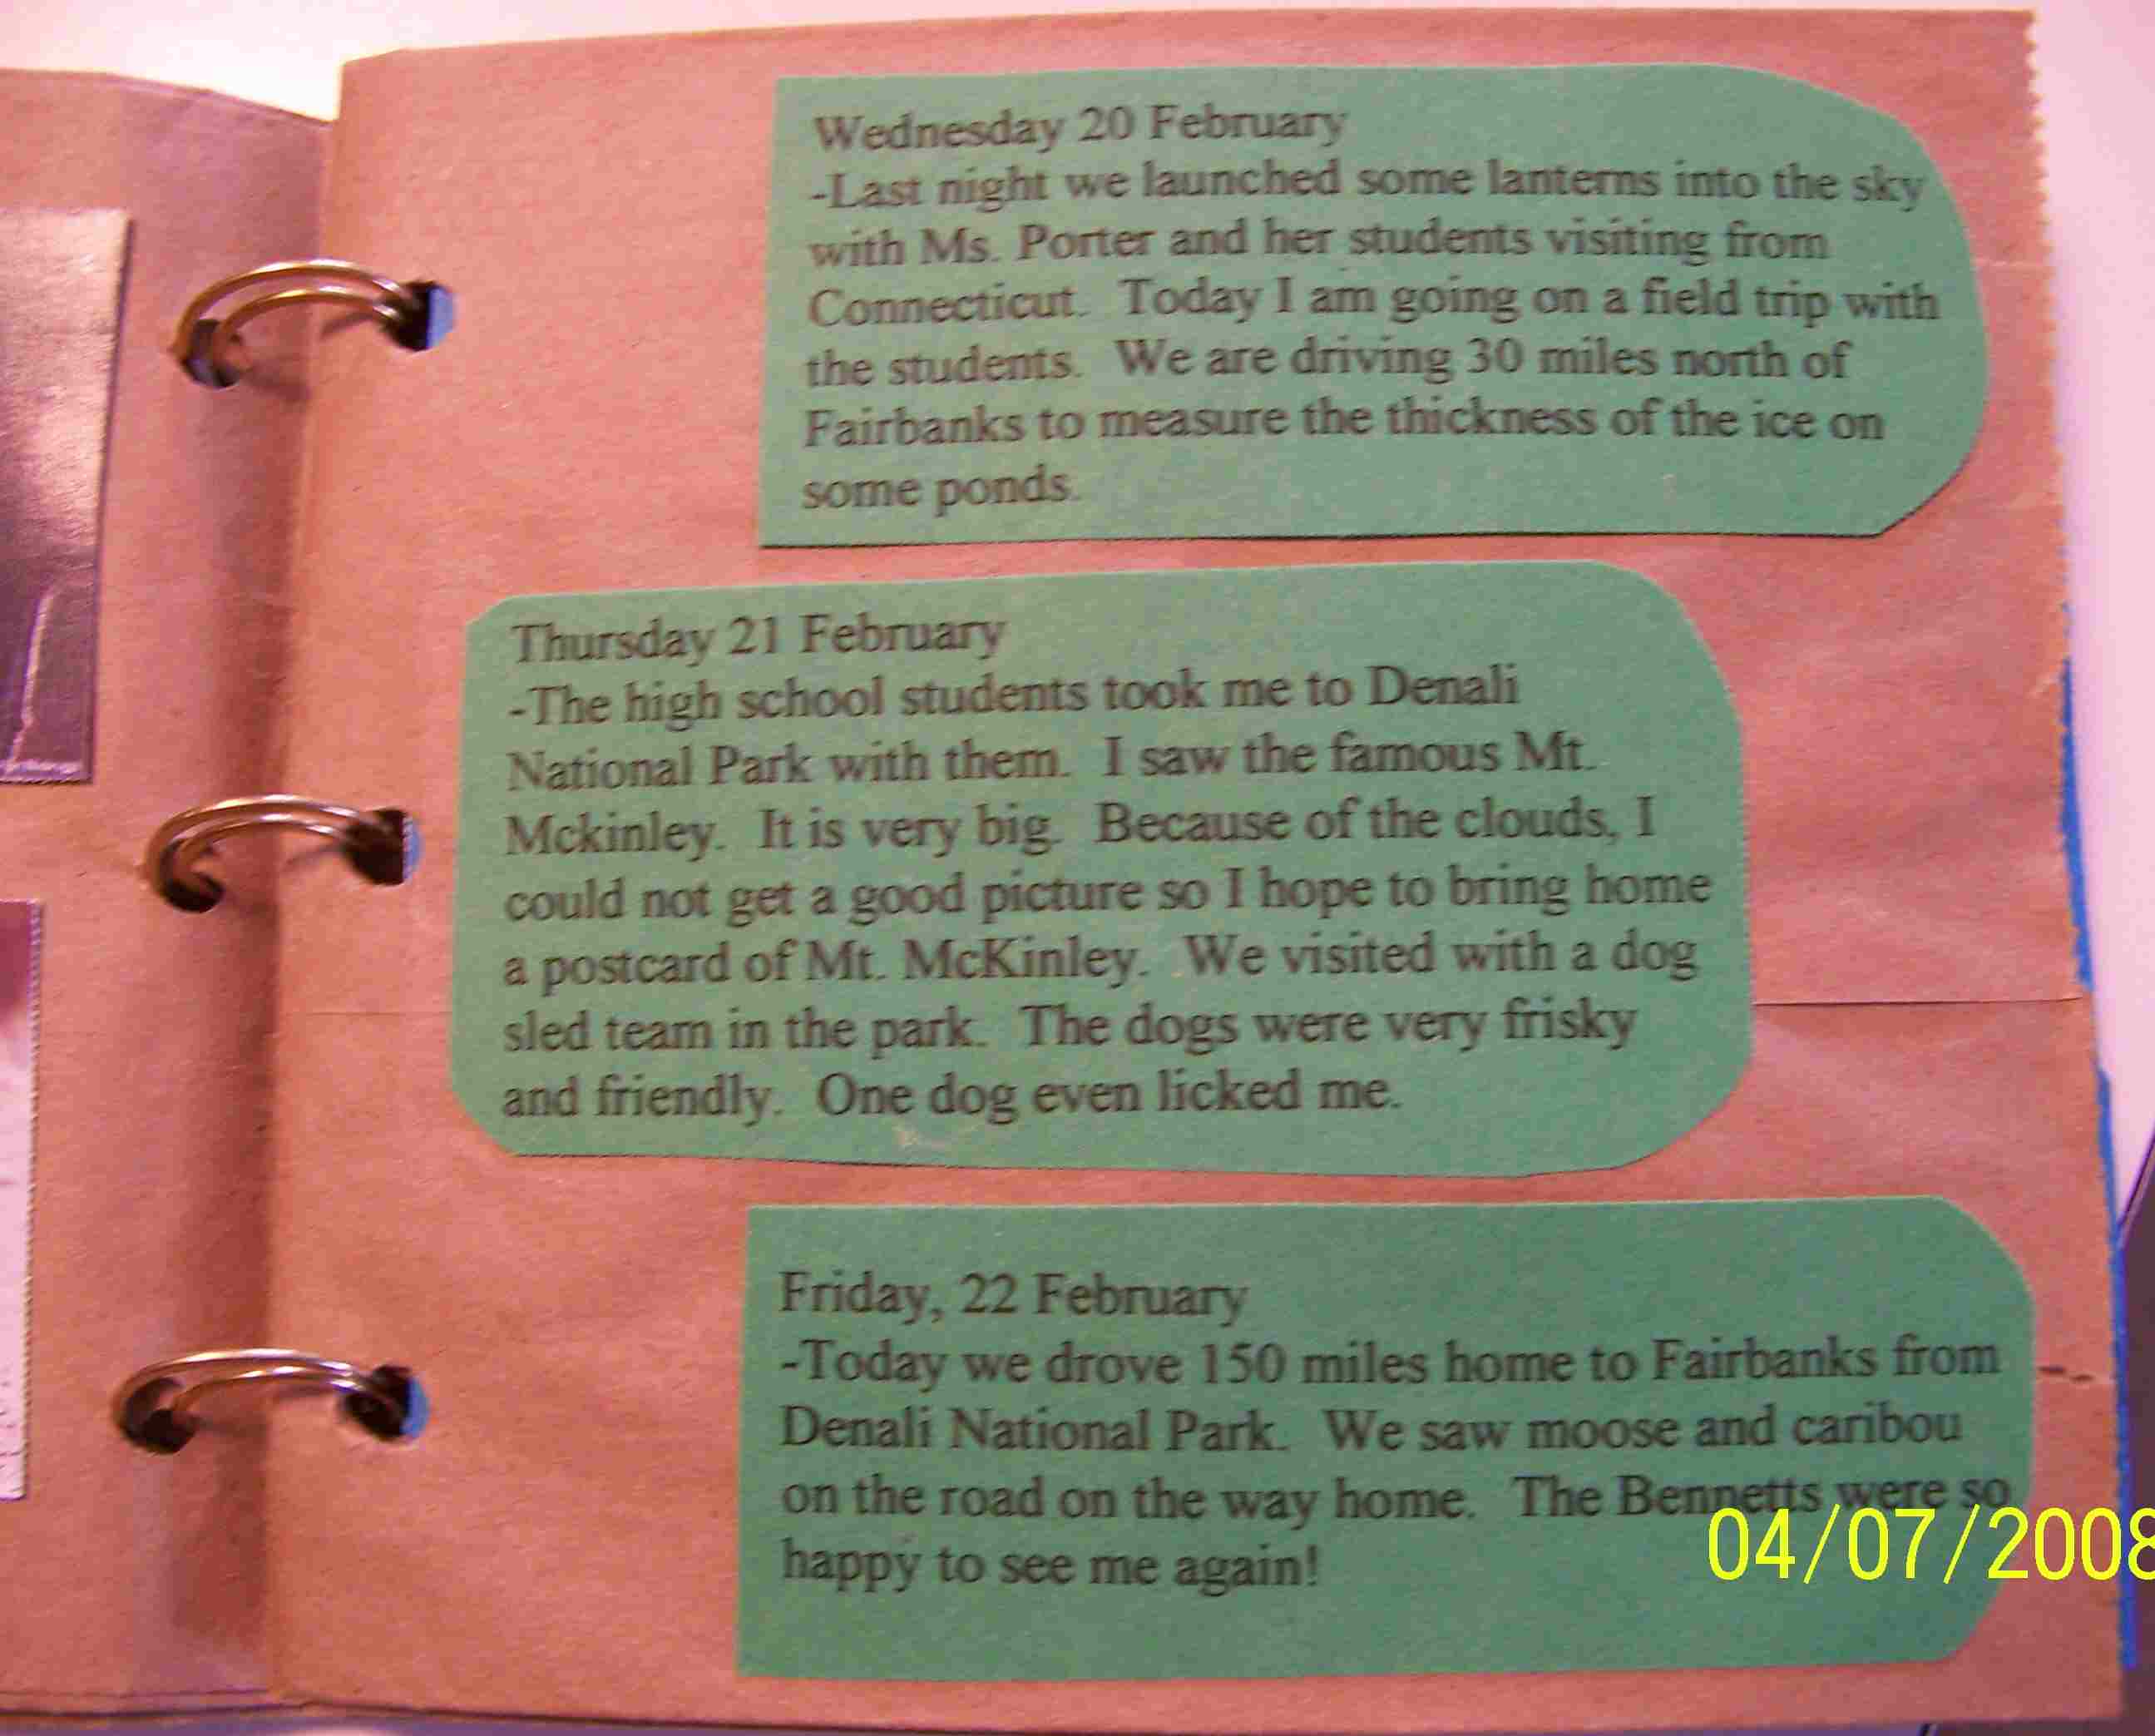 Wednesday 20 February
-Last night we launched some lanterns into the sky
with Ms. Porter and her students visiting from
Connecticut. Today I am going on a field trip with
the students. We are driving 30 miles north of
Fairbanks to measure the thickness of the ice on
some ponds.
Thursday 21 February
-The high school students took me to Denali
National Park with them. I saw the famous Mt.
Mckinley. It is very big. Because of the clouds, I
could not get a good picture so I hope to bring home
a postcard of Mt. McKinley. We visited with a dog
sled team in the park. The dogs were very frisky
and friendly. One dog even licked me.
Friday, 22 February
-Today we drove 150 miles home to Fairbanks from
Denali National Park. We saw moose and caribou
on the road on the way home. The Bennetts were so
happy to see me again!
04/07/2008